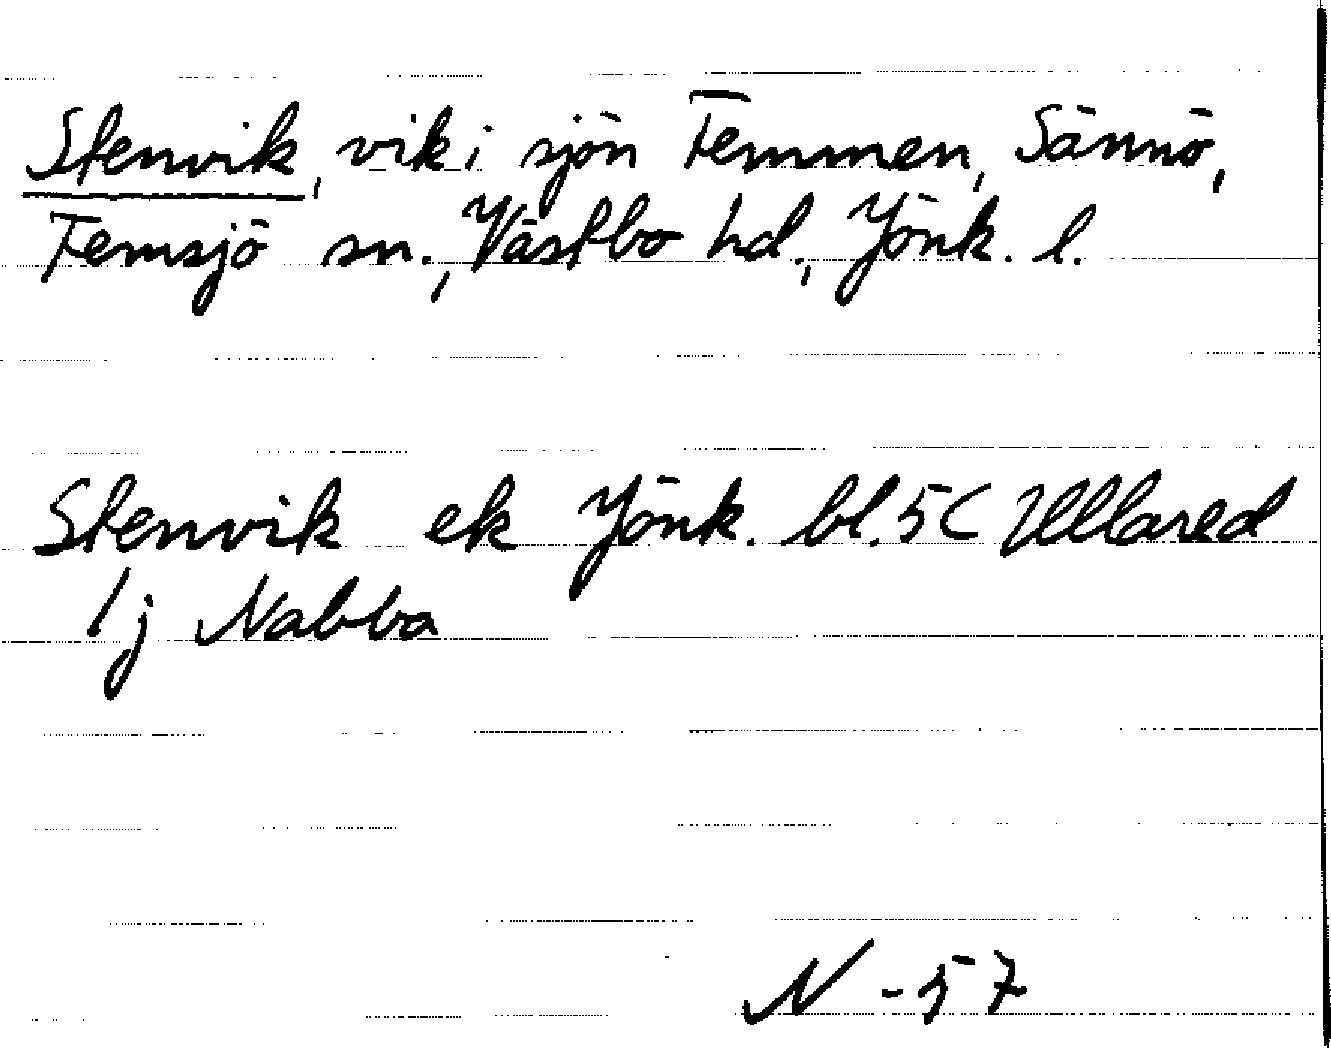 Stenvik, vik i sjön Femmen, Sännö,
Femsjö sn., Västbo hd., Jönk. l.
Stenvik ek Jönk. bl. 5C Ullared
/j Nabba
N -57